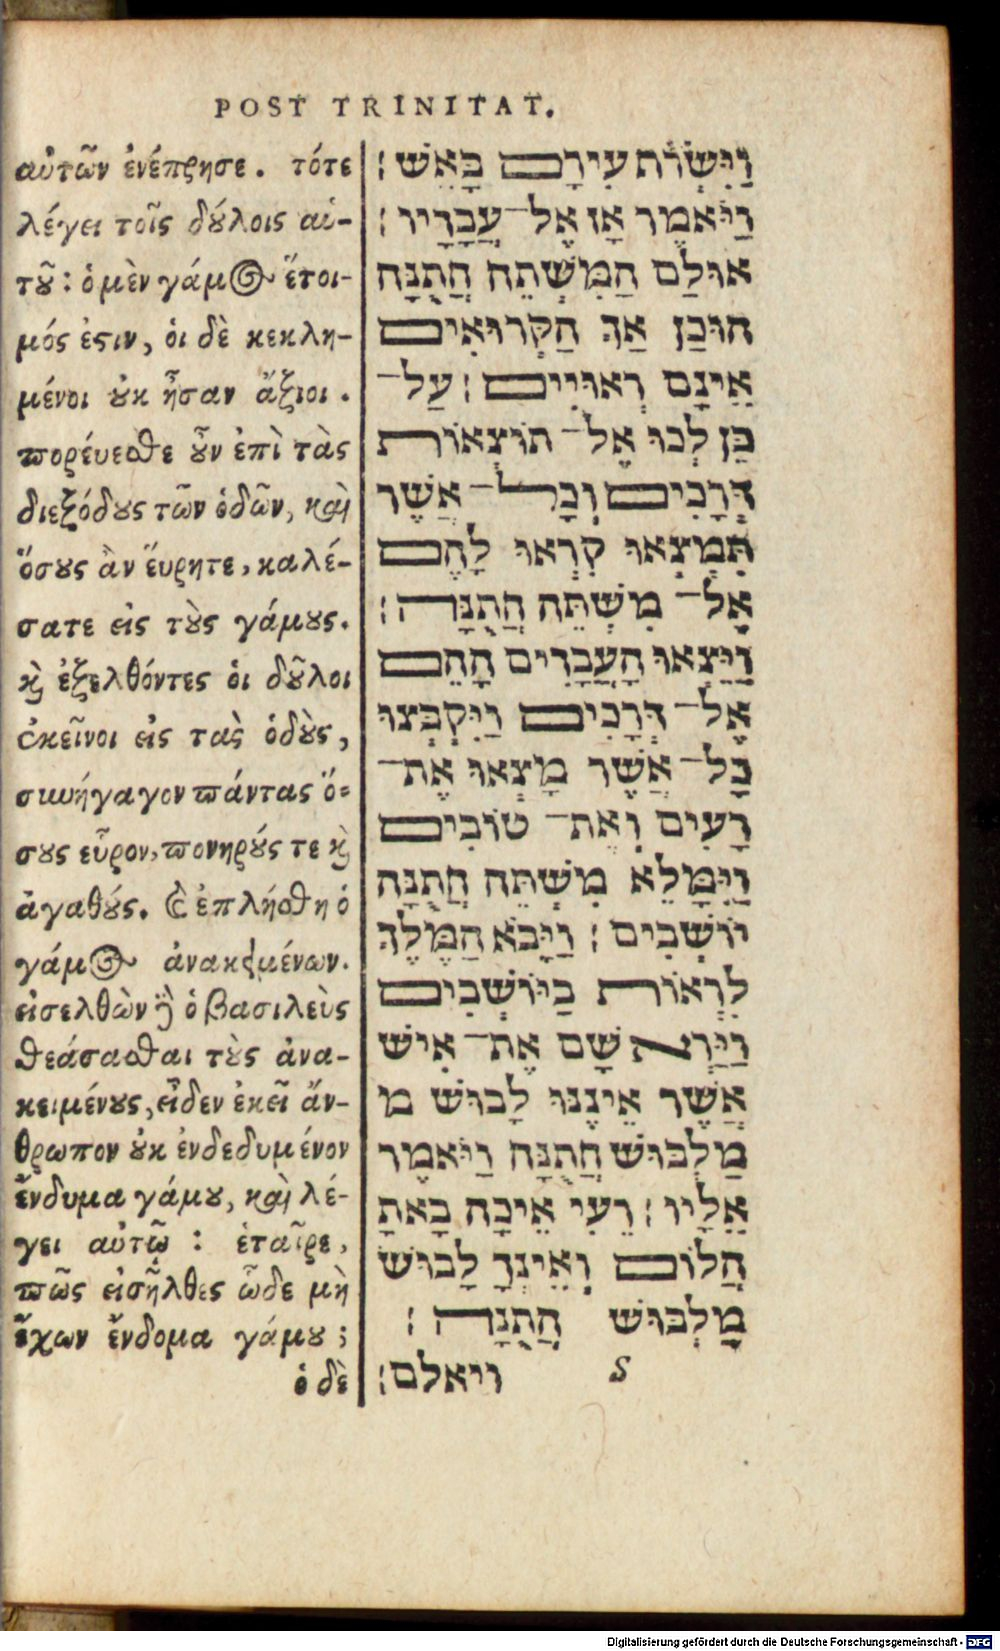 POST TRINITAT.
αὐτῶν ἐνέπρησε. τότε
λέγει τοῖς δούλοις αὑ-
τοῦ: ὁ μὲν γάμος ἕτοι-
μός ἐστιν, οἱ δὲ κεκλη-
μένοι οὐκ ἦσαν ἄξιοι.
πορέυεσθε οὖν ἐπὶ τὰς
διεξόδους τῶν ὁδῶν, καὶ
ὅσους ἂν ἕυρητε, καλέ-
σατε εἰς τοὺς γάμους.
καὶ ἐξελθόντες οἱ δοῦλοι
ἐκεῖνοι εἰς τὰς ὁδοὺς,
συνήγαγον πάντας ὅ-
σους εὗρον, πονηρούς τε καὶ
ἀγαθούς. καὶ ἐπλήσθη ὁ
γάμος ἀνακειμένων.
εἰσελθὼν δὲ ὁ βασιλεὺς
θεάσασθαι τοὺς ἀνα-
κειμένους, εἶδεν ἐκεῖ ἄν-
θρωπον οὐκ ἐνδεδυμένον
ἔνδυμα γάμου, καὶ λέ-
γει αὐτῷ: ἑταῖρε,
πῶς εἰσῆλθες ὧδε μὴ
ἔχων ἔνδομα γάμου;
ὁ δὲ
וַיִּשְׂרֹת עִירָם בָּאֵשׁ:
וַיֹּאמֶר אָז אֶל־ עֲבָדָיו:
אוּלַם הַמִּשְׁתֵּה הֲתֻנָּה
הוּכַן אַךְ הַקְּרוּאִים
אֵינָם רְאוּיִים: עַל־
כֵּן לְכוּ אֶל־ תּוֹצְאוֹת
דְּרָכִים וְכָל־ אֲשֶׁר
תִּמְצְאוּ קִרְאוּ לָהֶם
אֶל־ מִשְׁתֵּה הֲתֻנָּה:
וַיֵּצְאוּ הָעֲבָדִים הָהֵם
אֶל־ דְּרָכִים וַיִּקְבְּצוּ
כָּל־ אֲשֶׁר מָצְאוּ אֶת־
רָעִים וְאֶת־ טוֹבִים
וַיִּמָּלֵא מִשְׁתֵּה חֲתֻנָּה
יוֹשְׁבִים: וַיָּבֹא הַמֶּלֶךְ
לִרְאוֹת בַּיּוֹשְׁבִים
וַיַּרְא שָׁם אֶת־ אִישׁ
אֲשֶׁר אֵינֶנּוּ לָבוּשׁ מ
מַלְבּוּשׁ חֲתֻנָּה וַיֹּאמֶר
אֵלָיו: רֵעִי אֵיכָה בָאתָ
הֲלוֹם וְאֵינְךָ לָבוּשׁ
מַלְבּוּשׁ חֲתֻנָּה:
S ויאלם:
Digitalisierung gefördert durch die Deutsche Forschungsgemeinschaft - DFG